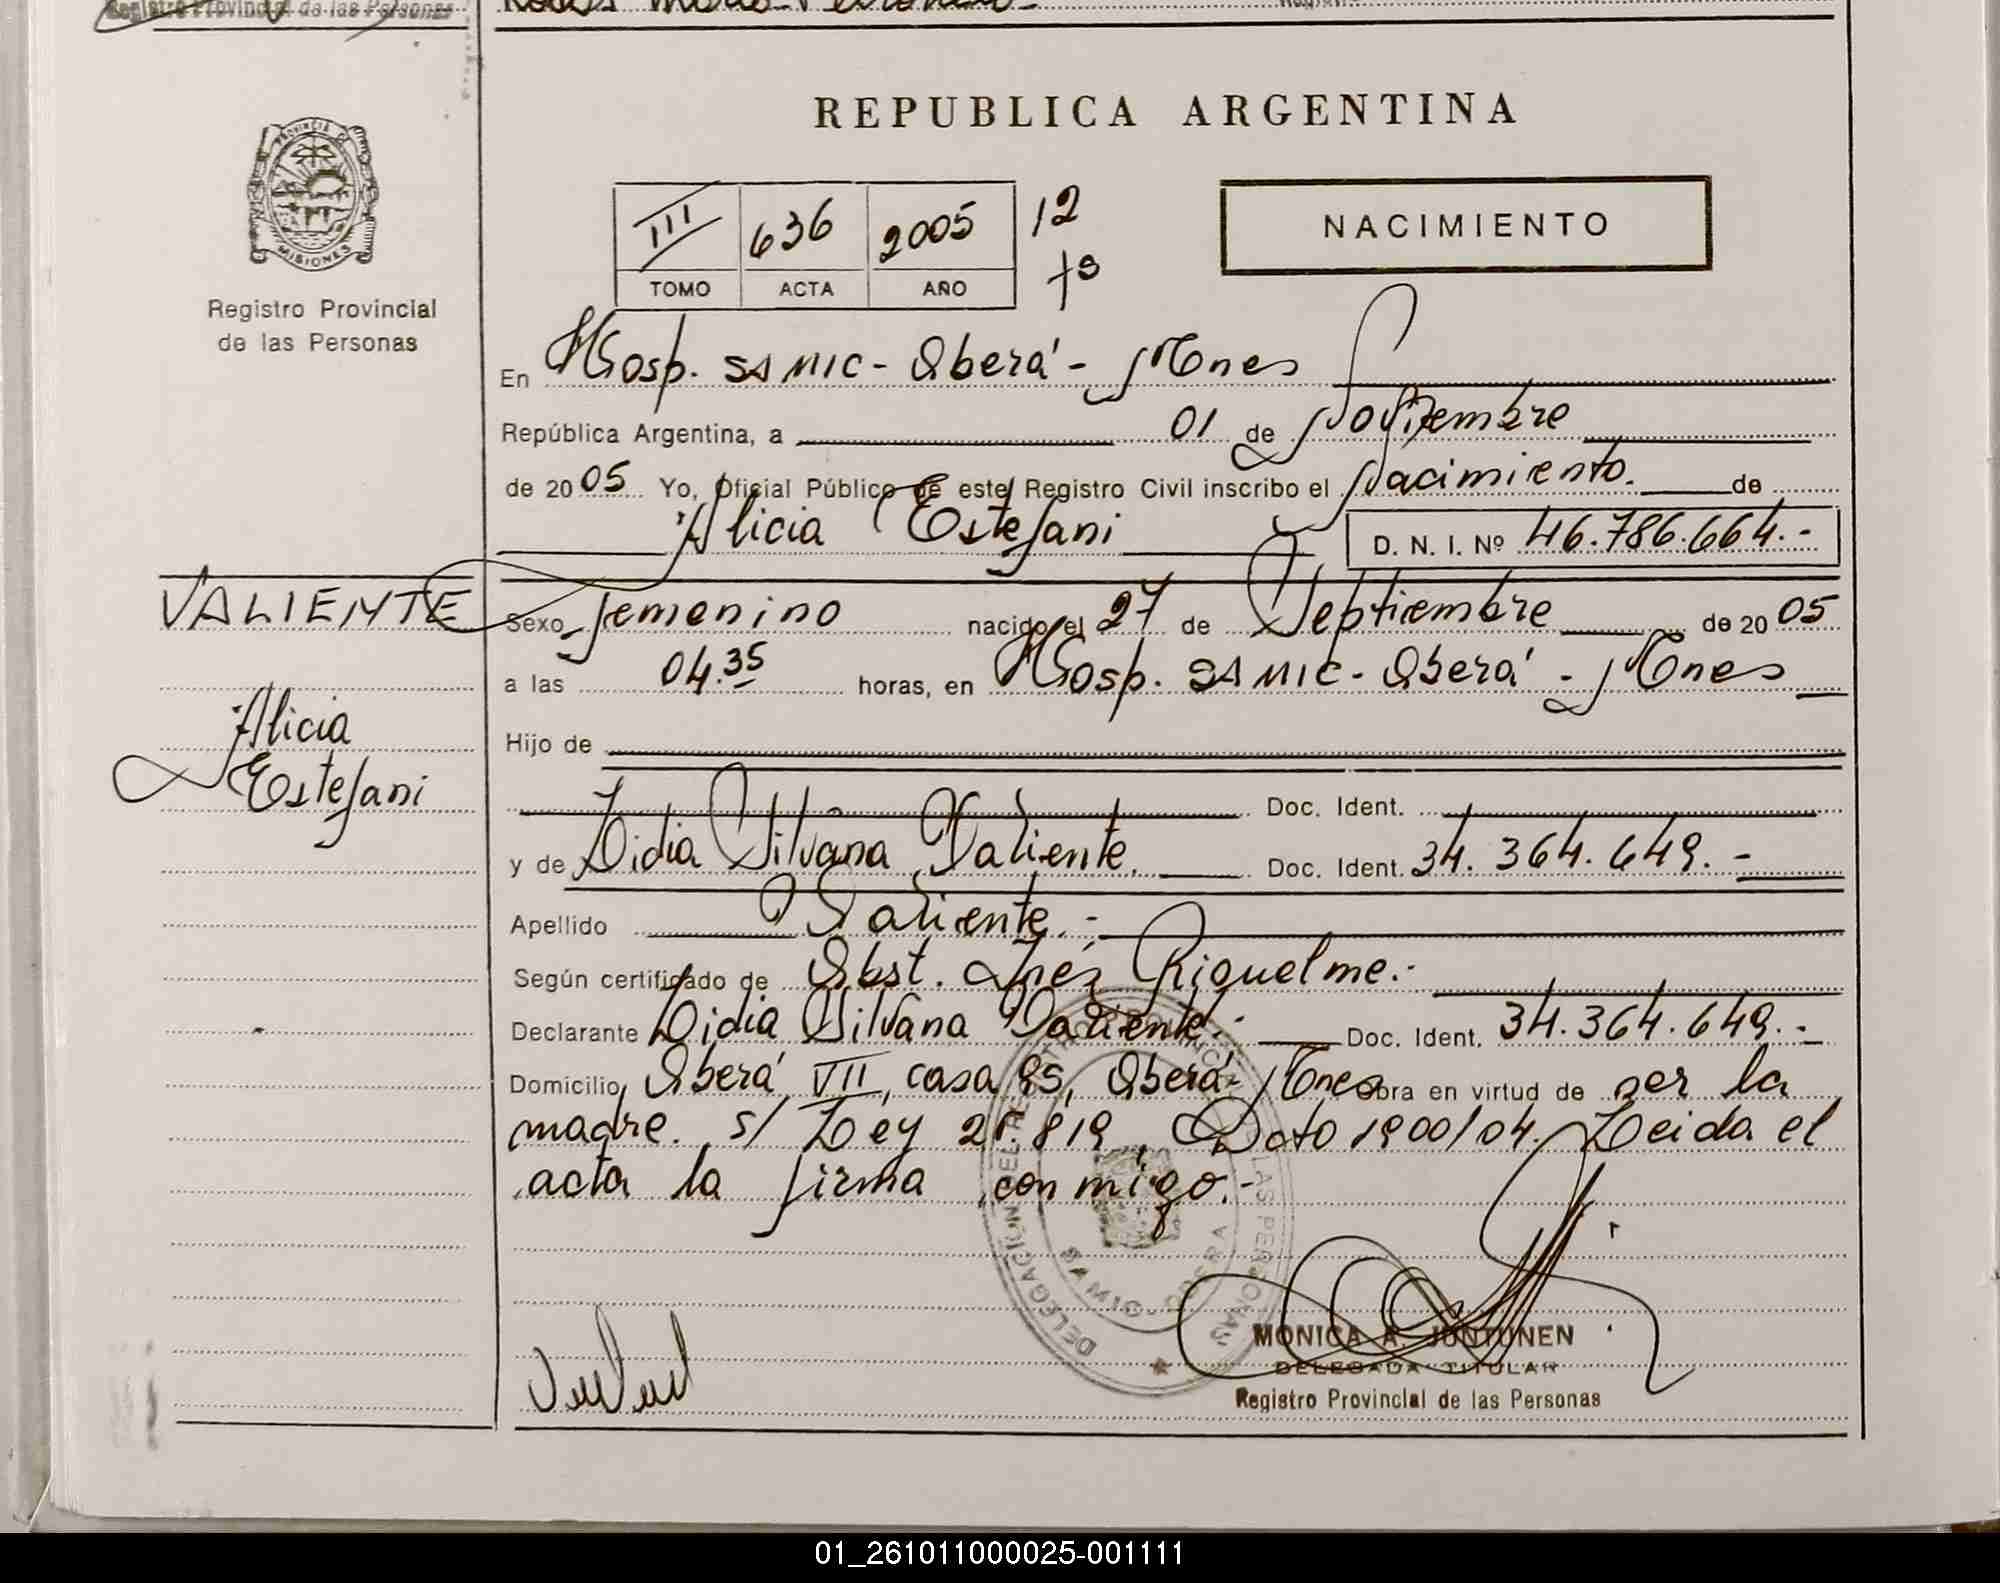 Registro Provincial de las Personas
REPUBLICA ARGENTINA
PROVINCIA DE
MISIONES
Registro Provincial
de las Personas
III 636 2005 12
TOMO ACTA AÑO fº
NACIMIENTO
En Hosp. SAMIC - Oberá - Mnes
República Argentina, a 01 de Noviembre
de 2005 Yo, Oficial Público de este Registro Civil inscribo el Nacimiento. de
Alicia Estefani D. N. I. Nº 46.786.664.-
VALIENTE
Alicia
Estefani
Sexo femenino nacido el 27 de Septiembre de 2005
a las 04.35 horas, en Hosp. SAMIC - Oberá - Mnes
Hijo de
Doc. Ident.
y de Lidia Silvana Valiente. Doc. Ident. 34.364.649.-
Apellido Valiente.-
Según certificado de Obst. Inés Riquelme.-
Declarante Lidia Silvana Valiente.- Doc. Ident. 34.364.649.-
Domicilio Oberá VII, casa 95, Oberá - Mnes obra en virtud de ser la
madre. s/ Ley 21.819 Dcto 1900/04. Leida el
acta la firma conmigo.-
DELEGACION DEL REGISTRO PROVINCIAL DE LAS PERSONAS
SAMIC - OBERA
MONICA A. JUNTUNEN
DELEGADA TITULAR
Registro Provincial de las Personas
01_261011000025-001111